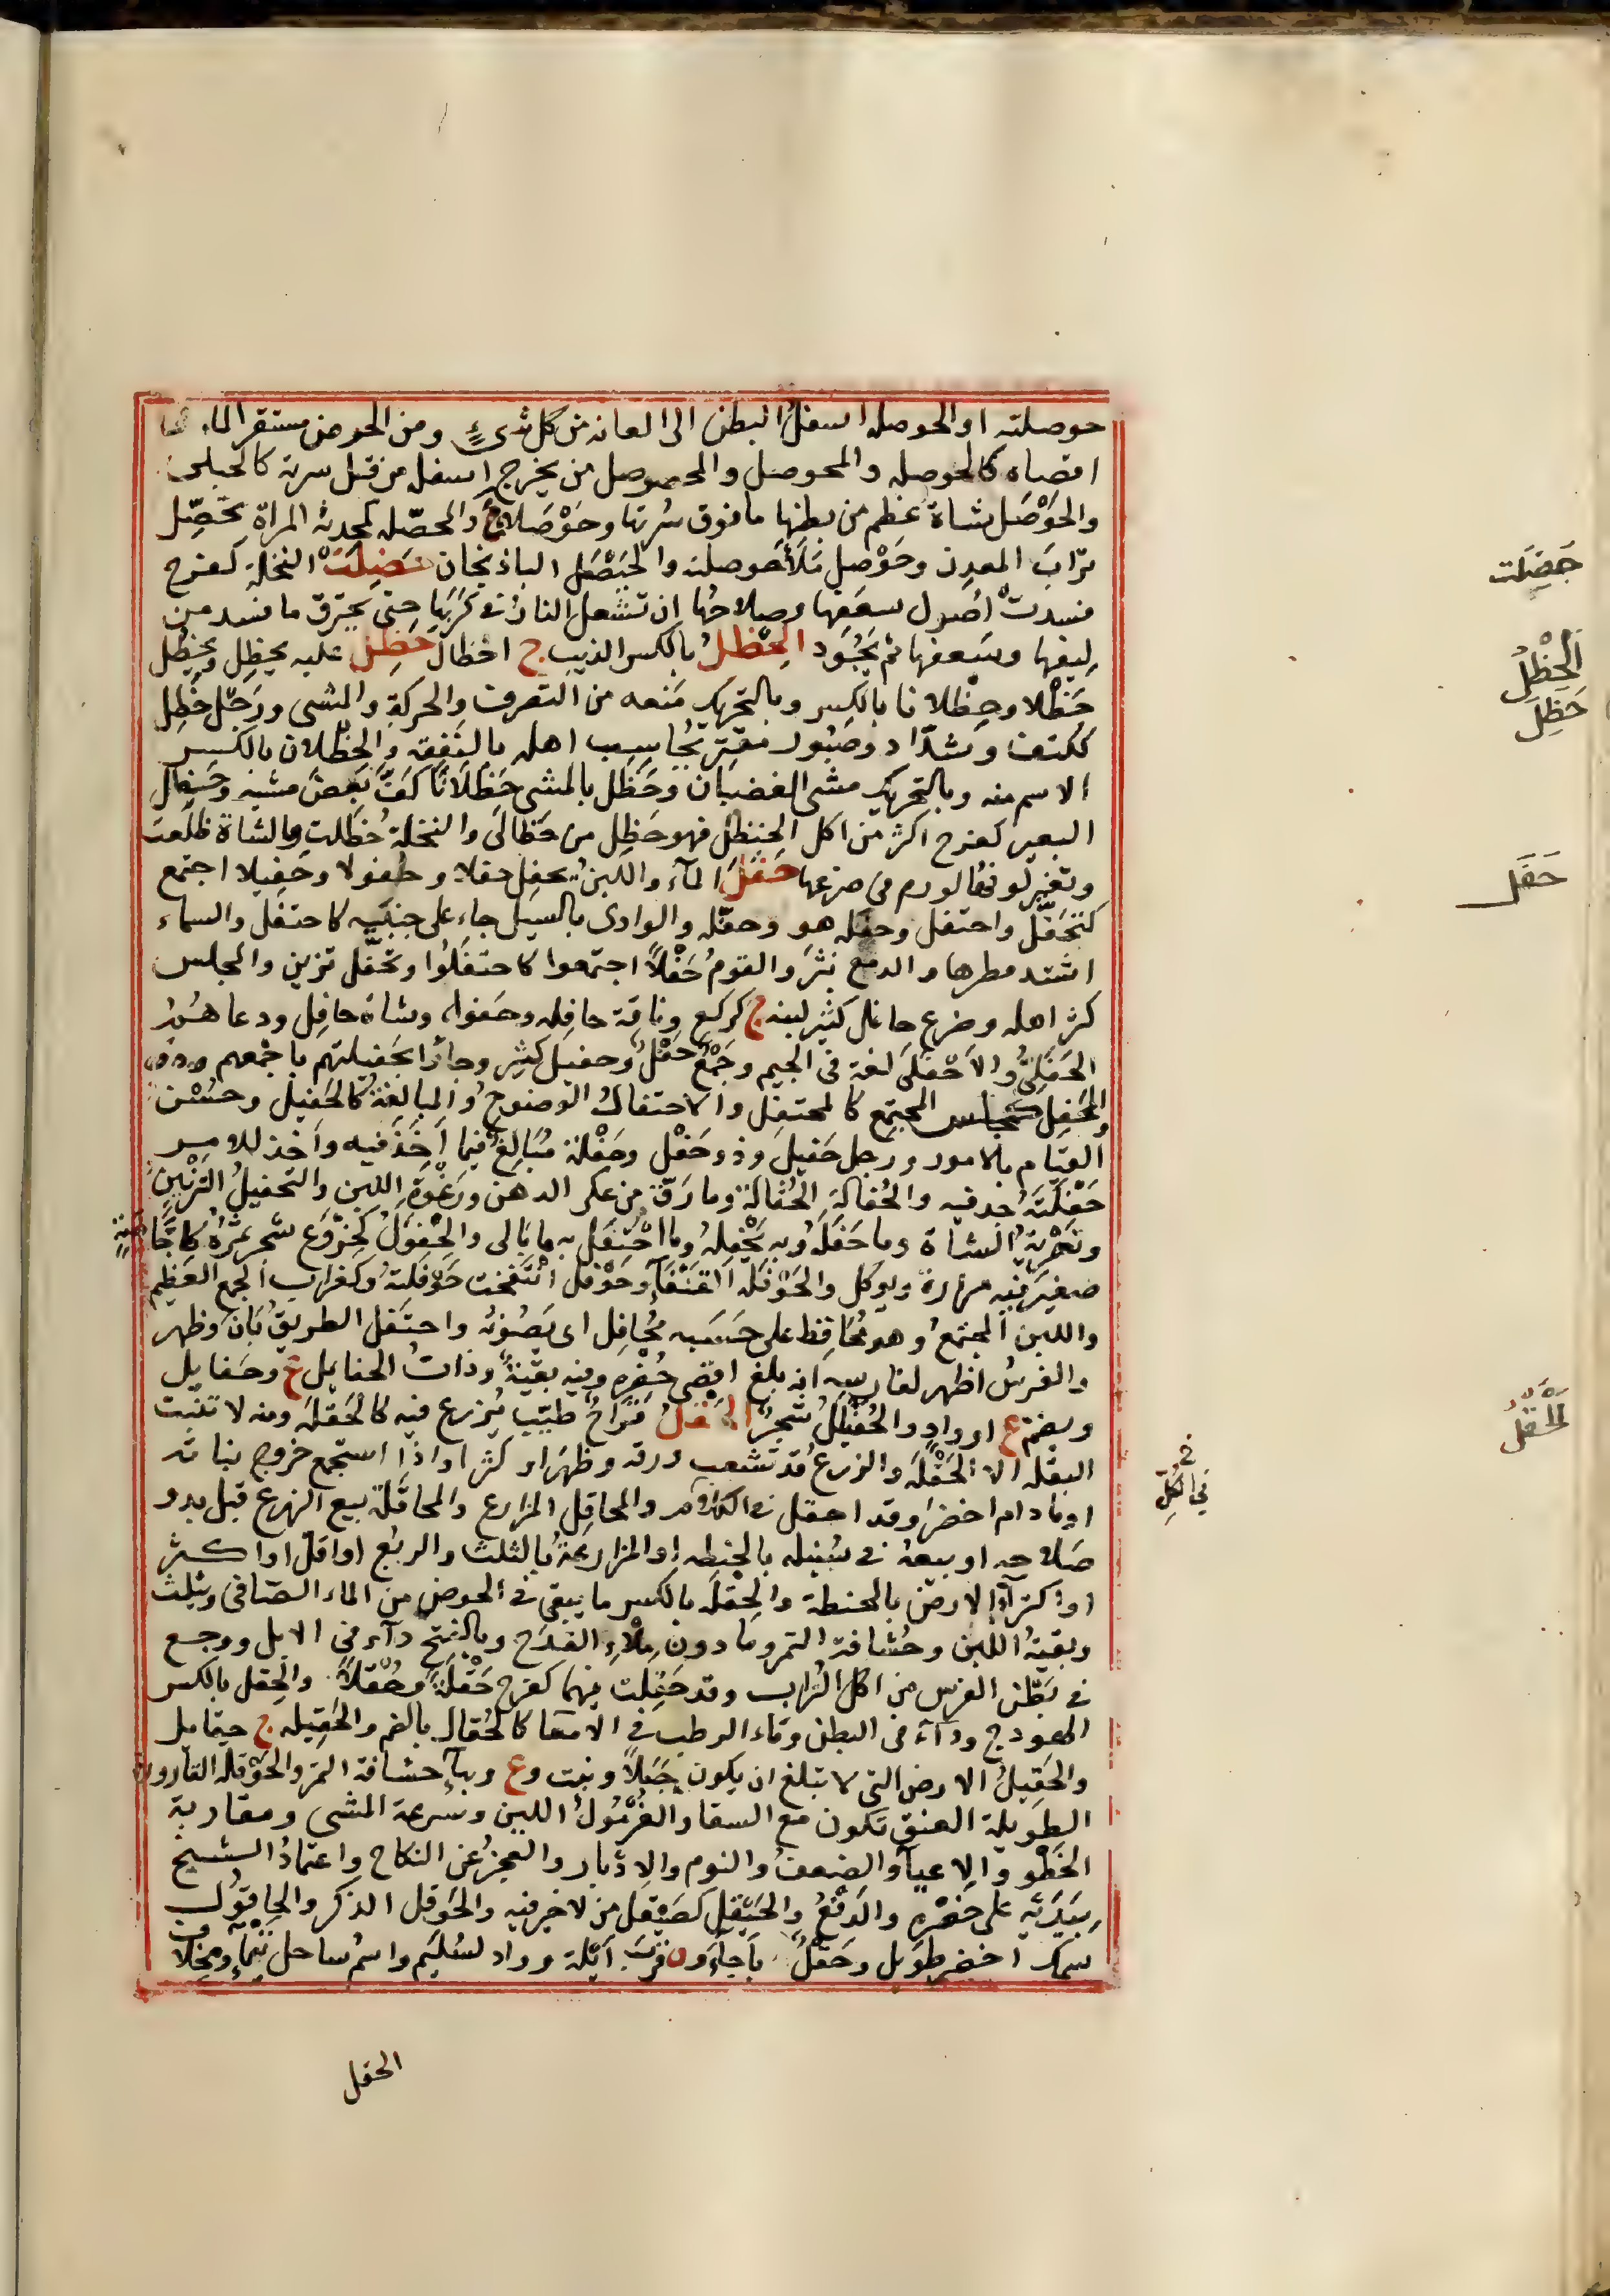 حوصلته او الحوصله اسفل البطن الى العانه من كل شىءٍ ومن الحوض مستقر الماء
اقصاه كالحوصله والمحوصل والمحصوصل من يخرج اسفله من قبل سرته كالحبلى
والحَوْصَل شاة عظم من بطنها ما فوق سُرتها وحَوْصَلا ع والمحصّله كمحدثه المراة تحصِّل
تراب المعدِن وحَوْصل مَلأ حوصلته والحَيْصَل الباذنجان حَضِلَتْ النخلة كفرح
فسدت أصول سعفها وصلاحُها ان تشعل النارُ في كَرَبِها حتى يحترق ما فسد من
ليفها وسعفها ثم يَجُود الحِظلُ بالكسر الذيب ج احظال حَظل عليه يحظِل ويحظُل
حَظْلا وحِظلانا بالكسر وبالتحريك مَنعه من التصرف والحركة والمشى ورجل حَظِل
ككتف وشدّاد وصَبُور مقتر يُحاسِب اهله بالنفقه والحِظْلان بالكسر
الاسم منه وبالتحريك مشى الغضبان وحَظَل بالمشى حَظَلاناً كفَّ بَعضَ مشيه وحَظِل
البعير كفرح اكثر من اكل الحنظل فهو حَظِل من حَظالَى والنخلة حُظَلت والشاة ظلعت
وتغير لونها لورم في ضرعها حَفَلَ المآء واللبن يحفِل حفلا وحفولا وحفيلا اجتمع
كتَحَفَّل واحتفل وحفَله هو وحفّله والوادى بالسيل جاء على جنبَيه كاحتفل والسماء
اشتد مطرها والدمع نثرَ والقومُ حَفْلاً اجتمعوا كاحتفَلُوا وتحفَّل تزين والمجلس
كثر اهله وضرع حافل كثير لبنه ج كركع وناقة حافِله وحفول وشاة حافِل ودعاهُمُ
الحَفَلَىُّ والاَحْفَلَى لغة في الجيم وجَمْعٌ حَفْلٌ وحفيل كثير وجاؤا بحَفيلتهم باجمعهم
والمحفِل كمجلس المجتمَع كالمحتفَل والاحتفالُ الوضوحُ والمبالغةُ كالحَفيل وحُسْن
القيام بالامور ورجل حَفيل وذو حَفْل وحَفْلة مُبَالِغٌ فيما اَخَذَ فيه واَخذ للامر
حَفْلَتَهُ جد فيه والحُفالة الحُثالة وما رَقّ من عكر الدهن ورَغْوة اللبن والتحفيلُ التَزْيينُ
وتَصْريةُ الشاة وما حَفَلَهُ وبه يَحْفِلهُ وما احْتفَل به ما بَالى والحِفْوَلُ كخِرْوَع شجر ثمَرُهُ كاِجَّاصَةٍ
صغيرة فيه مرارة ويوكل والحَوْفَلة القَنْفَآء وحَوْفَل انْتَفَخت حَوْفلته وكغراب الجمع العظيم
واللبن المجتمعُ وهو مُحافِظ على حَسَبِه مُحافِل اى يَصُونُه واحتَفَل الطريقُ بَان وظهر
والفرسُ اظهر لفارسِه انه بلغ اقصى حُضْره وفيه بقيّةٌ وذاتُ الحفايل ع وحَفايل
وبضم ع او وادٍ والحُفَيْلِلُ شجرٌ الحَقلُ قَرَاحٌ طيّب يُزرع فيه كالحَقْلَة ومنه لا تنبت
البقله الا الحَقْلَة والزرع قد تشعب ورقه وظهرَ او كثر او اذا استجمع خروج نباته
او ما دام اخضرَ وقد احقل في الكل والمحاقِل المزارع والمحاقَلة بيع الزرع قبل بدو
صَلاحه او بيعهُ في سُنبله بالحنطه او المزارعةُ بالثلث والربُع او اقلَ او اكثر
او اكترآءُ الارض بالحنطة والحِقلَة بالكسر ما يبقى في الحوض من الماء الصَافى ويثلث
وبقيةُ اللبن وحُشافة التمر وما دون مِلْءِ القدَح وبالفتح دآء في الابل ووجع
في بَطن الفرس من اكل التراب وقد حَقِلت فيهما كفرح حَقْلةً وحُقْلاً والحِقل بالكسر
الهودج ودآء في البطن ومَاء الرطب في الامعا كالحُقال بالضم والحَقِيله ج حقايل
والحَقِيلُ الارض التى لا تبلغ ان يكون جَبَلاً ونبت وع وبهآءٍ حشافة التمر والحَوْقلة القارورة
الطويلة العنق تكون مع السقاء والغُرمُولُ اللين وسُرعة المشى ومقاربة
الخَطْو والاعيآء والضعفُ والنوم والاِدبار والعجزُ عن النكاح واعتمادُ الشيخ
بيَدَيْه على خَصْرِه والدَفْعُ والحَيْقل كصَيْقل من لا خير فيه والحَوقل الذكر والحاقُول
سمك اخضر طويل وحَقلٌ باَجآءَ و ن قربَ اَيْلة وواد لسُلَيم واسْمُ ساحل تَيْمآءَ ومخلاف
الحقل
حَضِلَت
الحِظْلُ
حَظِلَ
حَفَل
الحَقْلُ
في الكُلِّ